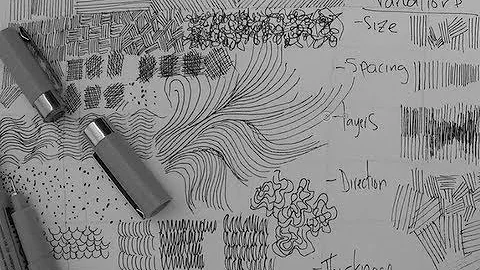 Variations
-Size
-Spacing
-layers
-Direction
-Thickness